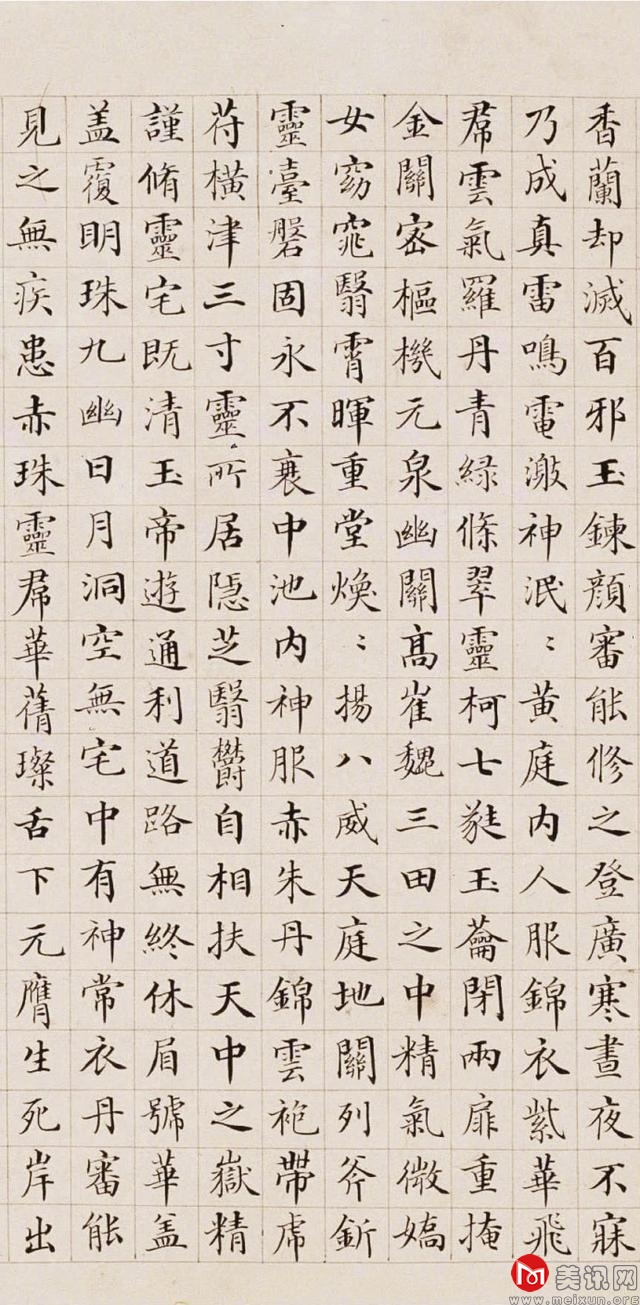 香蘭却滅百邪玉鍊顔審能修之登廣寒晝夜不寐
乃成真雷鳴電激神泯〻黄庭内人服錦衣紫華飛
帬雲氣羅丹青緑條翠靈柯七蕤玉籥閉兩扉重掩
金關密樞機元泉幽關髙崔巍三田之中精氣微嬌
女窈窕翳霄暉重堂煥〻揚八威天庭地關列斧釿
靈臺磐固永不衰中池内神服赤朱丹錦雲袍帶虎
符横津三寸靈所居隠芝翳欝自相扶天中之嶽精
謹脩靈宅既清玉帝遊通利道路無終休眉號華盖
盖覆明珠九幽日月洞空無宅中有神常衣丹審能
見之無疾患赤珠靈帬華蒨璨舌下元膺生死岸出
美讯网
www.meixun.org